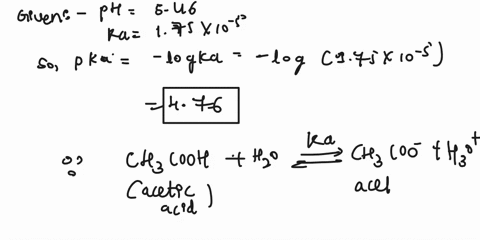 Given:- pH = 5.46
Ka = 1.75 × 10⁻⁵
So, pKa = -logKa = -log (1.75 × 10⁻⁵)
= 4.76
∴ CH₃COOH + H₂O ⇌ Ka CH₃COO⁻ + H₃O⁺
(acetic acid) acet